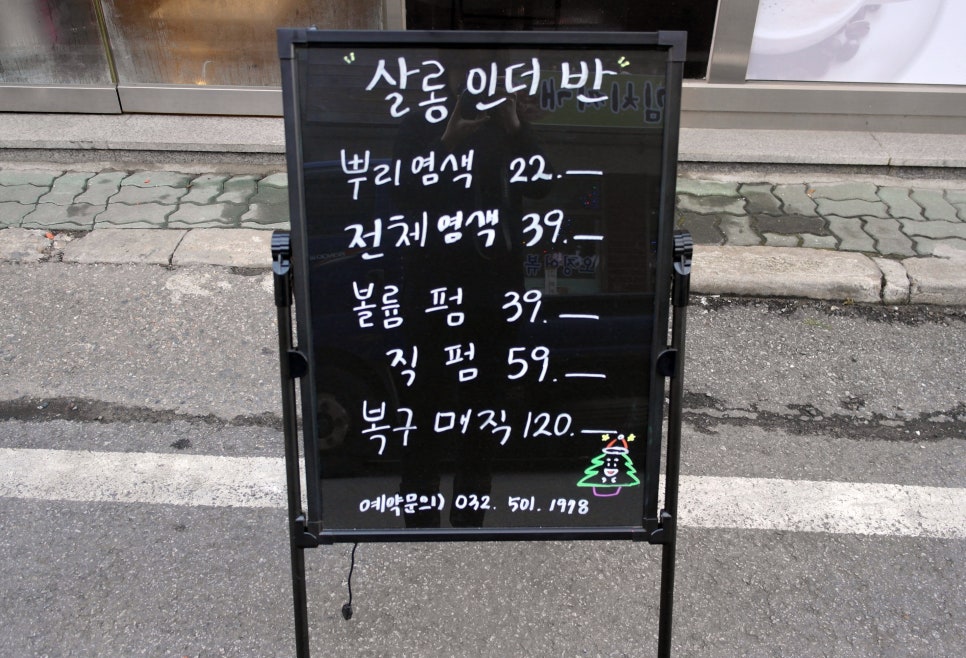 살롱 인더 반
뿌리염색 22.—
전체염색 39.—
볼륨 펌 39.—
직 펌 59.—
복구 매직 120.—
예약문의) 032. 501. 1998